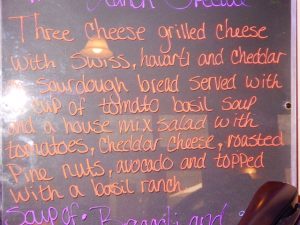 Lunch Special
Three Cheese grilled cheese
with Swiss, havarti and cheddar
on Sourdough bread served with
a cup of tomato basil soup
and a house mix salad with
tomatoes, cheddar cheese, roasted
Pine nuts, avocado and topped
with a basil ranch
Soup of